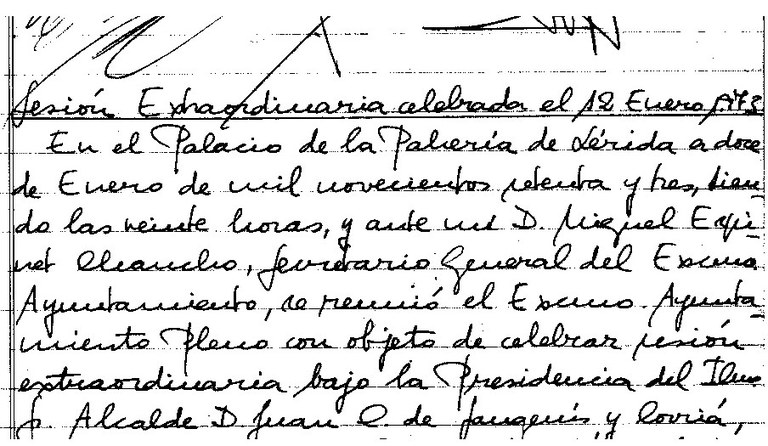 Sesión Extraordinaria celebrada el 12 Enero 1973
En el Palacio de la Pahería de Lérida a doce
de Enero de mil novecientos setenta y tres, sien-
do las veinte horas, y ante mi D. Miguel Espi-
net Chancho, Secretario General del Excmo
Ayuntamiento, se reunió el Excmo. Ayunta-
miento Pleno con objeto de celebrar sesión
extraordinaria bajo la Presidencia del Ilmo
Sr. Alcalde D Juan C. de Sangenís y Corriá,